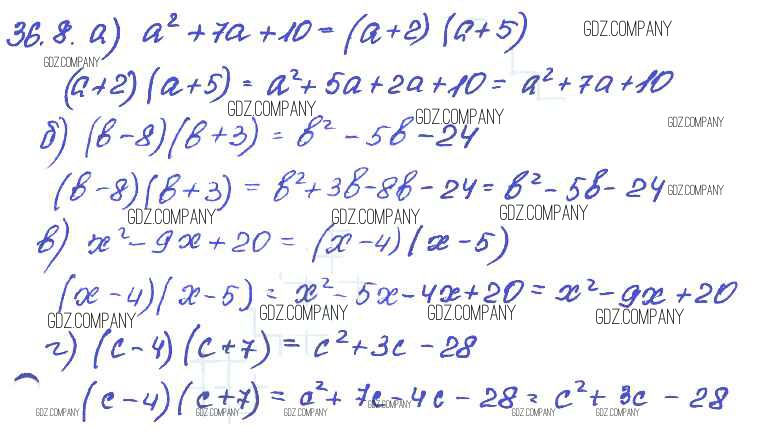 36.8. а) a² + 7a + 10 = (a+2)(a+5) GDZ.COMPANY
GDZ.COMPANY
(a+2)(a+5) = a² + 5a + 2a + 10 = a² + 7a + 10
GDZ.COMPANY GDZ.COMPANY GDZ.COMPANY
б) (b-8)(b+3) = b² - 5b - 24
(b-8)(b+3) = b² + 3b - 8b - 24 = b² - 5b - 24 GDZ.COMPANY
GDZ.COMPANY GDZ.COMPANY GDZ.COMPANY
в) x² - 9x + 20 = (x-4)(x-5)
(x-4)(x-5) = x² - 5x - 4x + 20 = x² - 9x + 20
GDZ.COMPANY GDZ.COMPANY GDZ.COMPANY GDZ.COMPANY
г) (c-4)(c+7) = c² + 3c - 28
(c-4)(c+7) = c² + 7c - 4c - 28 = c² + 3c - 28
GDZ.COMPANY GDZ.COMPANY GDZ.COMPANY GDZ.COMPANY GDZ.COMPANY GDZ.COMPANY